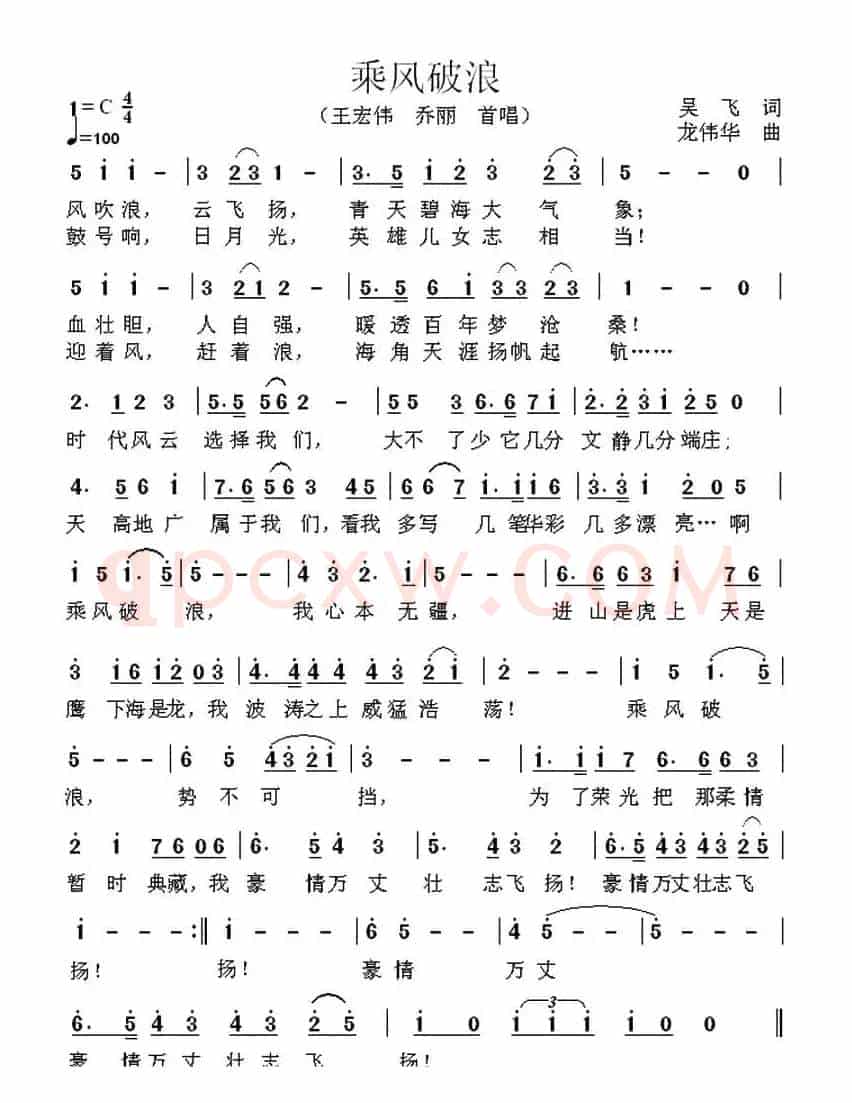 乘风破浪
1=C 4/4
（王宏伟 乔丽 首唱）
吴 飞 词
♩=100
龙伟华 曲
5 1̇ 1̇ - | 3 2 3 1 - | 3· 5 1̇ 2̇ 3̇ 2̇ 3̇ | 5 - - 0 |
风吹浪， 云飞扬， 青天碧海大 气 象；
鼓号响， 日月光， 英雄儿女志 相 当！
5 1̇ 1̇ - | 3 2 1 2 - | 5· 5 6 1̇ 3 2 3 | 1 - - 0 |
血壮胆， 人自强， 暖透百年梦 沧 桑！
迎着风， 赶着浪， 海角天涯扬帆起 航……
2· 1 2 3 | 5· 5 5 6 2 - | 5 5 3 6 3· 6 7 1̇ | 2̇· 2̇ 3̇ 1̇ 2̇ 5 0 |
时 代风云 选择我们， 大不了少它几分 文静几分端庄；
4· 5 6 1̇ | 7· 6 5 6 3 4 5 | 6 6 7 1̇· 1̇ 1̇ 6 | 3̇· 3̇ 2̇ 0 5 |
天 高地广 属于我们，看我 多写 几笔华彩 几多漂亮…啊
qpcxw.COM
1̇ 5 1̇· 5̇ | 5̇ - - - | 4̇ 3̇ 2̇· 1̇ | 5 - - - | 6· 6 6 3 1̇ 7 6 |
乘风破 浪， 我心本 无疆， 进山是虎上 天是
3̇ 1̇ 6 1̇ 2̇ 0 3̇ | 4̇· 4̇ 4̇ 3̇ 4̇ 3̇ 2̇ 1̇ | 2̇ - - - | 1̇ 5 1̇· 5̇ |
鹰 下海是龙，我 波 涛之上 威猛浩 荡！ 乘风破
5̇ - - - | 6̇ 5̇ 4̇ 3̇ 2̇ 1̇ | 3̇ - - - | 1̇· 1̇ 1̇ 7 6· 6 6 3 |
浪， 势不可 挡， 为 了荣光把 那柔情
2̇ 1̇ 7 6 0 6 | 6̇· 5̇ 4̇ 3̇ | 5̇· 4̇ 3̇ 2̇ | 6̇· 5̇ 4̇ 3̇ 4̇ 3̇ 2̇ 5̇ |
暂时典藏，我 豪 情万丈 壮 志飞扬！豪情万丈壮志飞
1̇ - - - :‖ 1̇ - - - | 6̇ 5̇ - - | 4̇ 5̇ - - | 5̇ - - - |
扬！ 扬！ 豪情 万丈
6̇· 5̇ 4̇ 3̇ 4̇ 3̇ 2̇ 5̇ | 1̇ 0 1̇ 1̇ 1̇ 1̇ 0 0 ‖
豪 情万丈 壮志飞 扬！